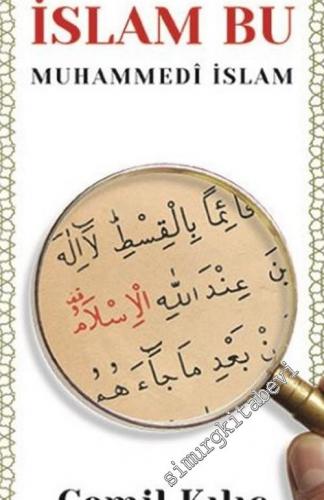 İSLAM BU
MUHAMMEDÎ İSLAM
قَائِمًا بِالْقِسْطِ لَٓا اِلٰهَ
عِنْدَ اللّٰهِ الْاِسْلَامُ
بَعْدِ مَا جَٓاءَهُمُ
simurgkitabevi
Cemil Kılıç